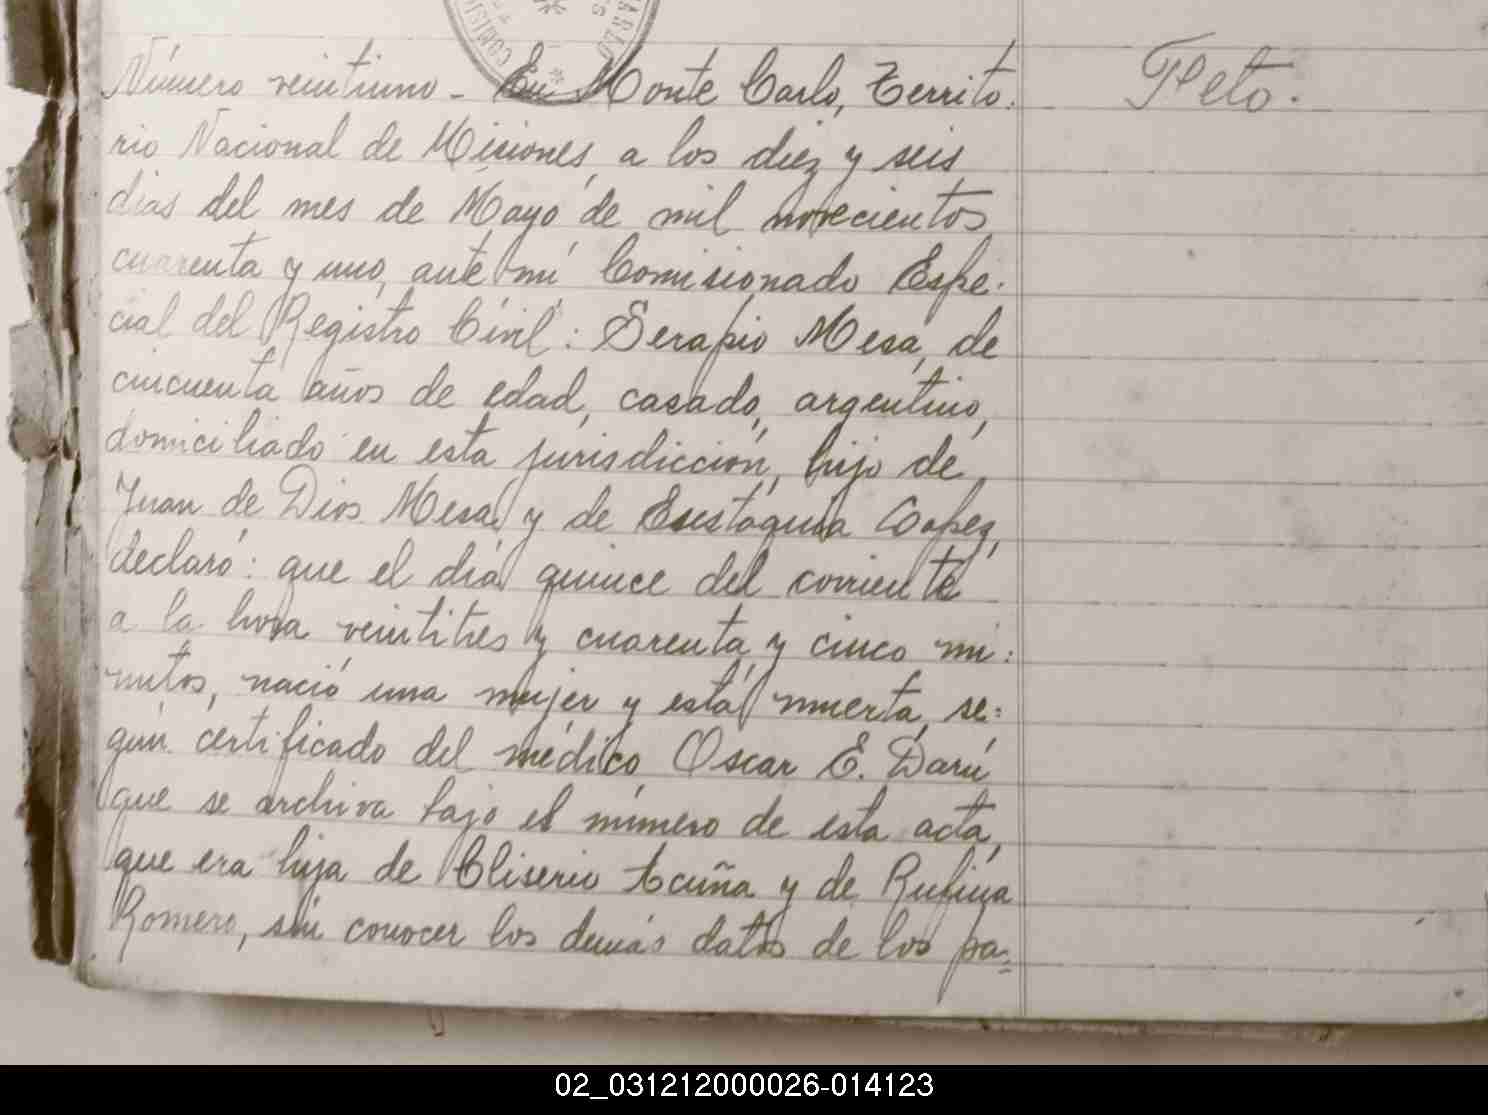 Número veintiuno - En Monte Carlo, Territo- Feto.
rio Nacional de Misiones, a los diez y seis
dias del mes de Mayo de mil novecientos
cuarenta y uno, ante mí Comisionado Espe-
cial del Registro Civil: Serapio Mesa, de
cincuenta años de edad, casado, argentino,
domiciliado en esta jurisdicción, hijo de
Juan de Dios Mesa y de Lopez,
declaró: que el día quince del corriente
a la hora veintitres y cuarenta y cinco mi-
nutos, nació una mujer y está muerta, se-
gún certificado del médico Oscar E. Darú
que se archiva bajo el número de esta acta,
que era hija de Cliserio Acuña y de Rufina
Romero, sin conocer los demás datos de los pa=
02_031212000026-014123